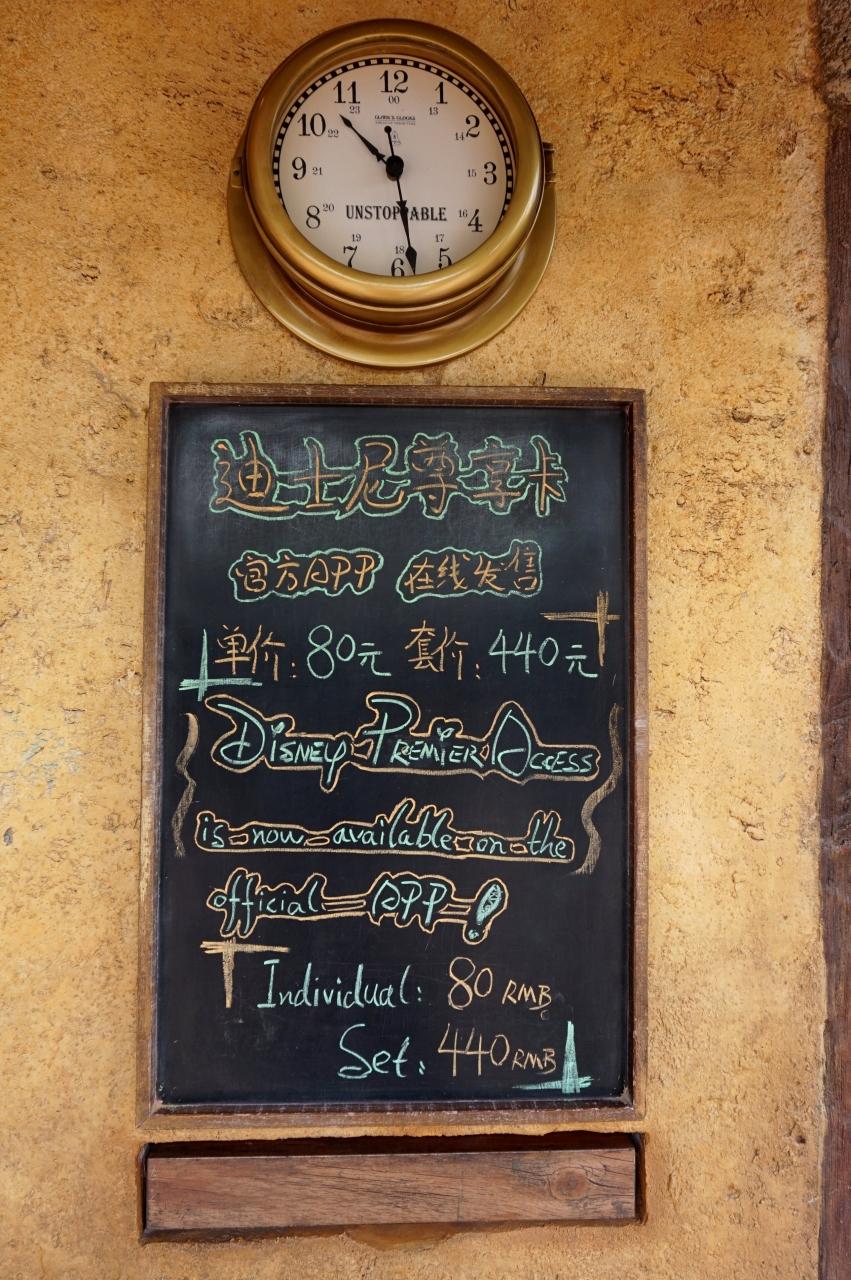 12
00
11
23
1
13
10
22
2
14
9
21
3
15
8
20
UNSTOPPABLE
16
4
19
7
18
6
17
5
迪士尼尊享卡
官方APP 在线发售
单价:80元 套价:440元
DISNEY PREMIER ACCESS
is now available on the
official APP!
Individual: 80 RMB
Set: 440 RMB